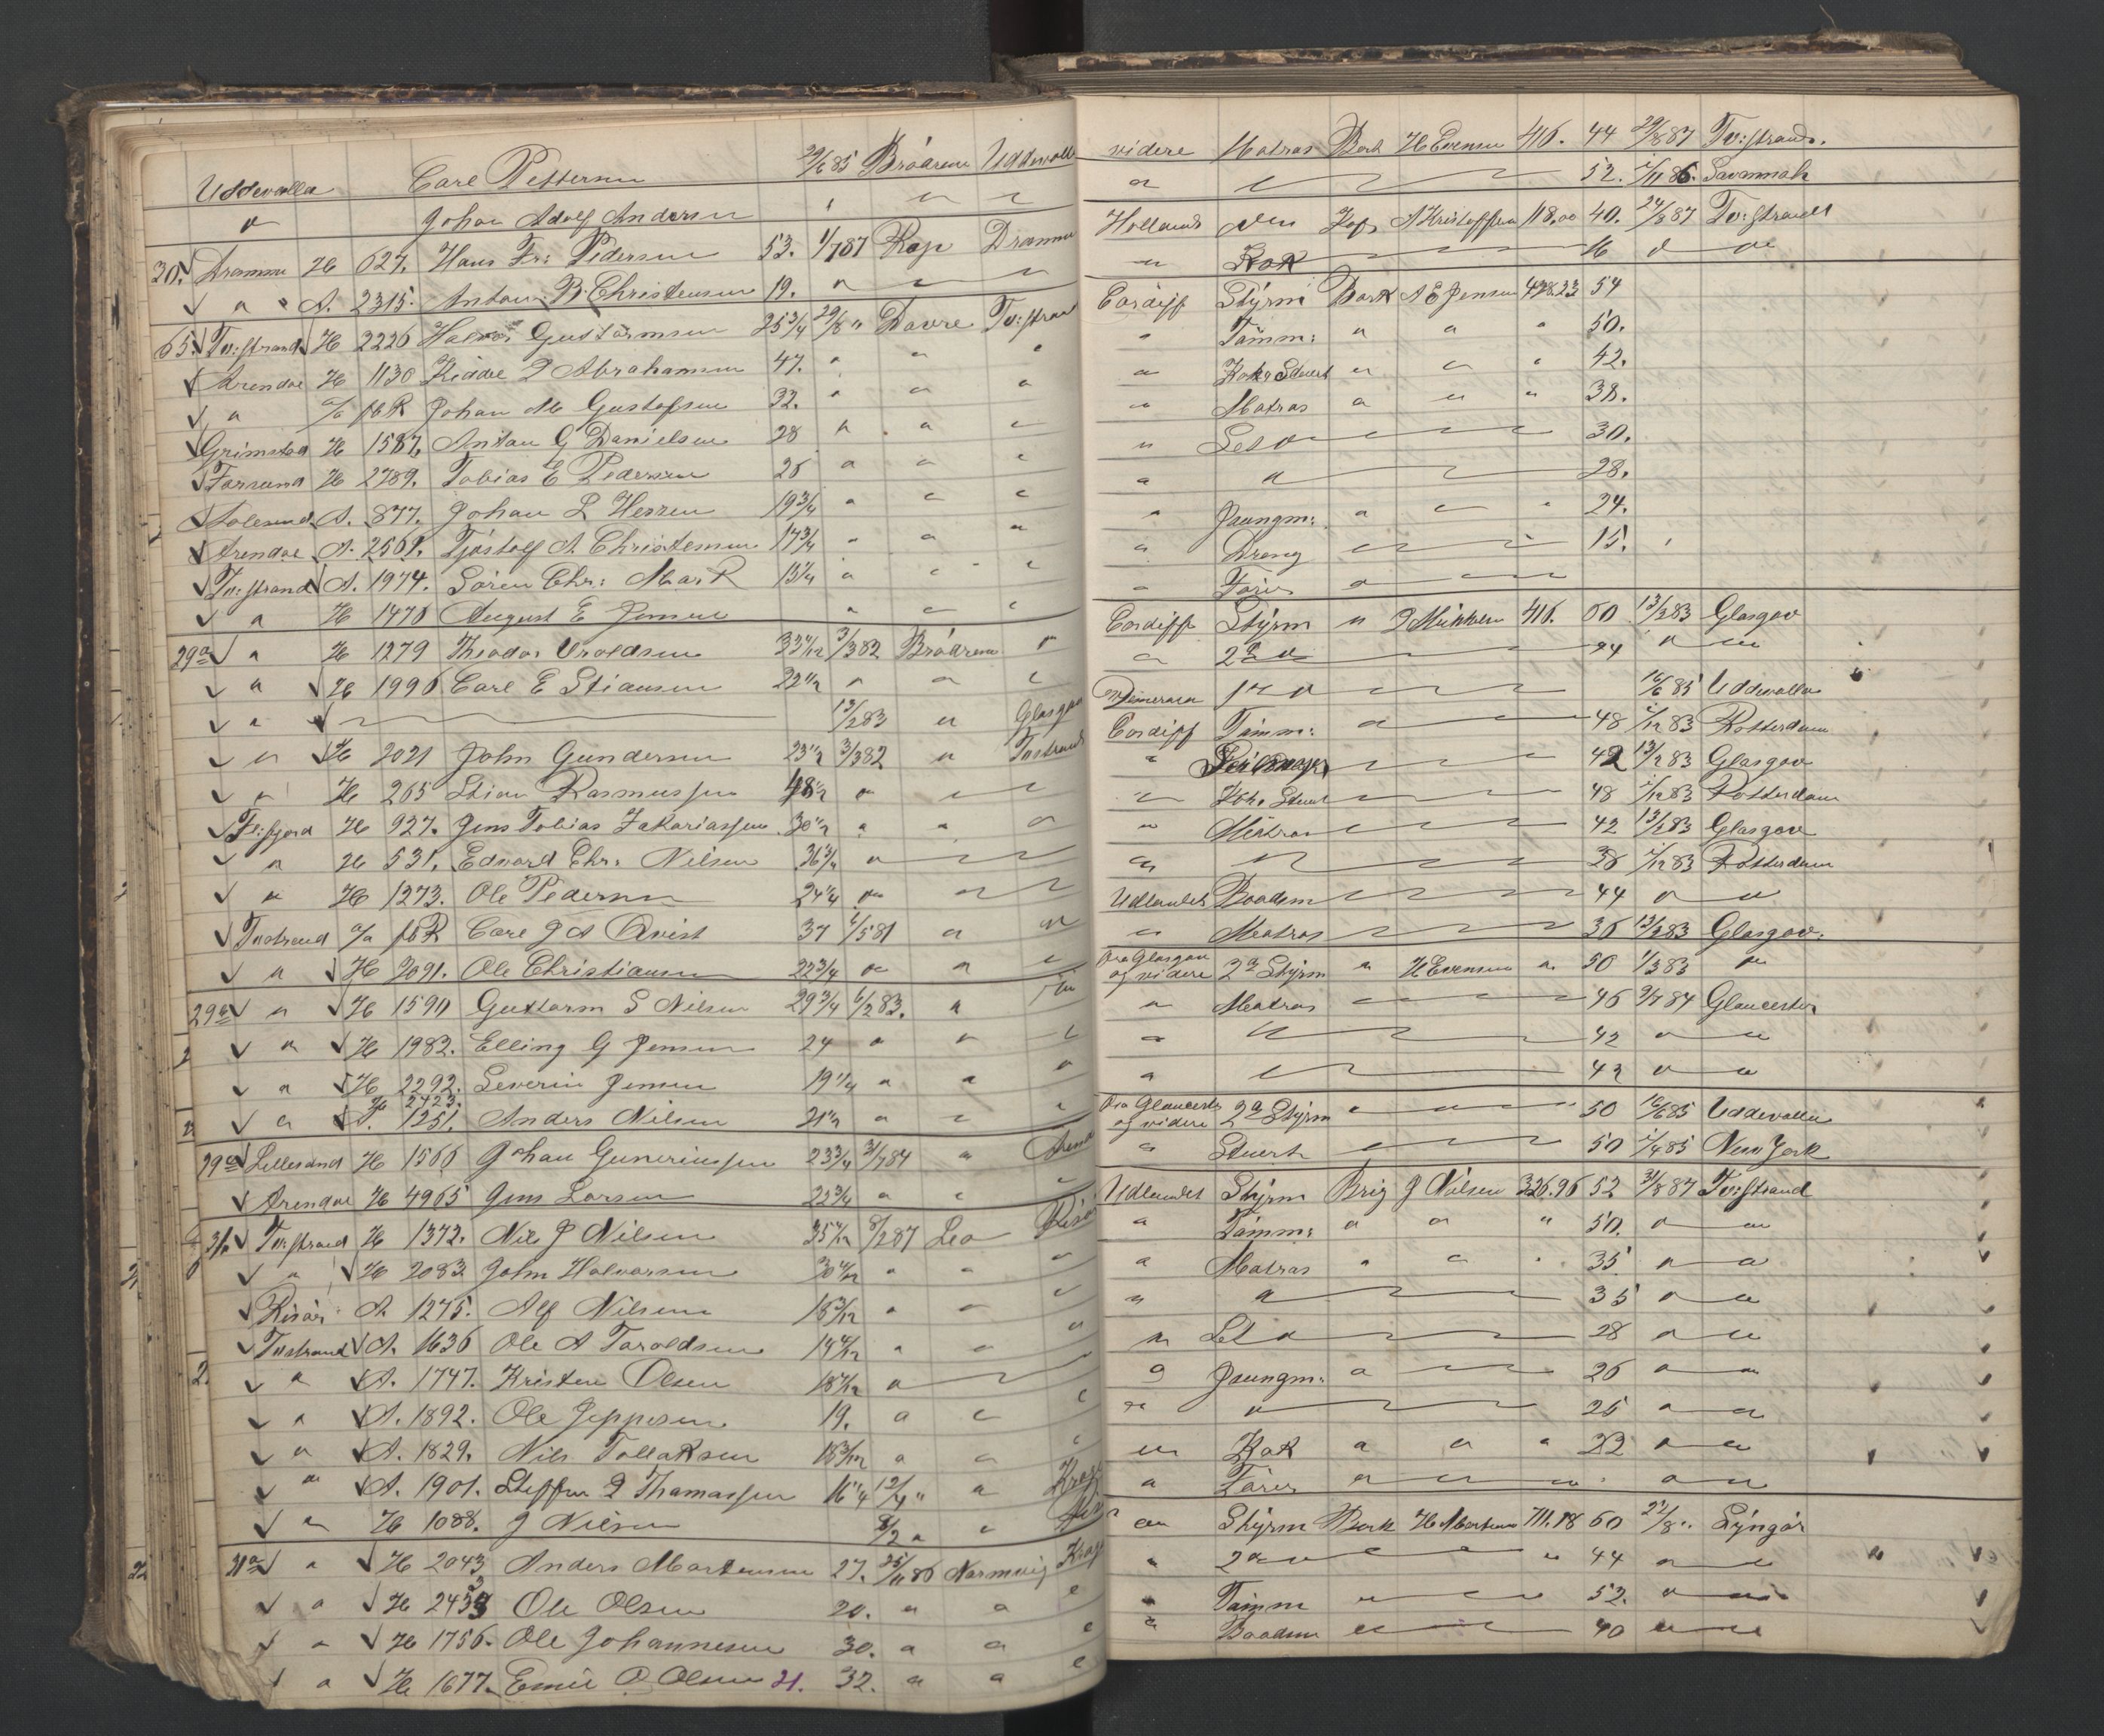 Uddevalla Carl Pettersen 29/6 85 Brödrene Uddevalla
" Johan Adolf Andersen " " "
30. Drammen H 627. Hans Fr: Pedersen 53. 1/7 87 Rap Drammen
" A. 2315. Anton B. Christensen 19. " "
65. Tv:strand H 2226 Halvor Guttormsen 25 3/4 29/8 " Dovre Tv:strand
Arendal H 1130 Kiddel P Abrahamsen 47. " " "
" Johan M Gustafsen 32. " " "
Grimstad H 1587. Anton G Danielsen 28 " " "
Farsund H 2789. Tobias E Pedersen 25 " " "
Aalesund A. 877. Johan L Herren 19 3/4 " " "
Arendal A. 2569. Tjøstolf A Christensen 17 3/4 " " "
Tv:strand A. 1974. Sören Chr: Mark 15 1/4 " " "
" H 1470 August E Jensen " " "
29a " H 1279 Theodor Uroldsen 33 3/3 82 Brödrene "
" H 1996 Carl E Stiansen 22 1/2 " " "
" 13/2 83 " Glasgow
" H 2021 John Gundersen 23 1/2 3/3 82 " Tvstrand
" H 265 Stian Rasmussen 48 1/2 " " "
Fl:fjord H 927. Jens Tobias Zakariassen 30 1/2 " " "
" H 531. Edvard Chr: Nilsen 36 3/4 " "
" H 1273. Ole Pedersen 24 1/4 " "
Tvstrand Carl J A Qvist 37 " "
" H 2091. Ole Christiansen 22 3/4 " " "
29b " H 1590 Guttorm S Nilsen 29 3/4 6/2 83. "
" H 1982. Elling G Jensen 24 " " "
" H 2292. Severin Jensen 19 1/4 " " "
" H 2423. A. 1251. Anders Nilsen 21 1/2 " " "
29c Lillesand H 1566 Johan Guneriussen 23 3/4 31/7 84 " Arend
Arendal H 4965 Jens Larsen 22 3/4 " " "
31 Tv:strand H 1372. Nils J Nilsen 35 8/2 87 Leo Risör
" H 2083 John Halvorsen " " "
Risör A. 1275. Alf Nilsen 18 3/12 " " "
Tvstrand A. 1636 Ole A Taroldsen " " "
" A. 1747. Kristen Olsen " "
" A. 1892. Ole Jeppesen 19. " " "
" A. 1829. Nils Tollaksen 18 3/12 " " "
" A. 1901. Steffen P Thomassen 16 1/4 12/4 " " Krag
" H 1088. J Nilsen 8/2 " "
31a " H 2043 Anders Mortensen 27. 25/11 86 Normvig Krag
" H 2433 Ole Olsen 20. " " "
" H 1756. Ole Johannesen 30. " " "
" H 1677. Emil O Olsen 21. 32. " " "
videre Matros Bark H Evensen 416. 44 29/8 87 Tv:strand.
" " 52. 7/11 86. Savannah
Holland do Jagt A Kristoffersen 118.00 40. 24/8 87 Tv:strand
" Kok 16 " "
Cardiff Styrm Bark A E Jensen 428.23 54
" Tømm: " " " 50.
" Kok & Stuert " " " 42.
" Matros " " " 38.
" Let " 30.
" " 28.
" Jaungm: " " " 24.
" Dreng 15.
" Förer "
Cardiff Styrm " 416. 60 13/2 83 Glasgow
" 2d " 44 " "
Demerara 1ste " 16/6 85 Uddevalla
Cardiff Tømm: " 48 7/12 83 Rotterdam
" Seilmager 42 13/2 83 Glasgow
" Kok & Stuert 48 7/12 83 Rotterdam
" Matros 42 13/2 83 Glasgow
" " 38 7/12 83 Rotterdam
Udlandet Baadsm 44 " "
" Matros 36 13/2 83 Glasgow.
Fra Glasgow og videre 2d Styrm " H Evensen " 50 1/3 83 "
" Matros 46 9/7 84 Gloucester
" " 42 " "
" " 42 " "
Fra Gloucester og videre 2d Styrm " 50 16/6 85 Uddevalla
" Stuert 50 7/4 85 New York
Udlandet Styrm Brig J Nilsen 326.96 52 31/8 87 Tv:strand
" Tømm: " " " 50. " "
" Matros " " " 35 " "
" " 35 " "
" Let " 28 " "
" Jaungm: " 26 " "
" " 25 " "
" Kok " " " 22 " "
" Förer " " "
" Styrm Bark H Mortensen 711.18 60 22/8 " Lyngör
" 2d " " 44 " "
" Tømm " 52. " "
" Baadsm 40 " "